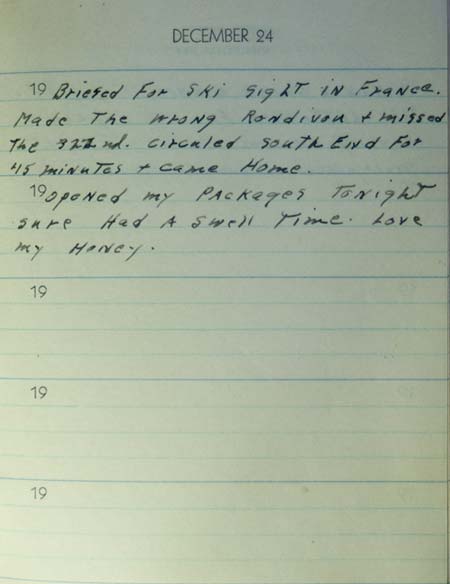 DECEMBER 24
19 Briefed For Ski sight in France.
Made The wrong Rondivou + missed
The 322nd. Circuled South End For
45 minutes + came Home.
19 opened my Packages Tonight
sure Had A Swell Time. Love
my Honey.
19
19
19